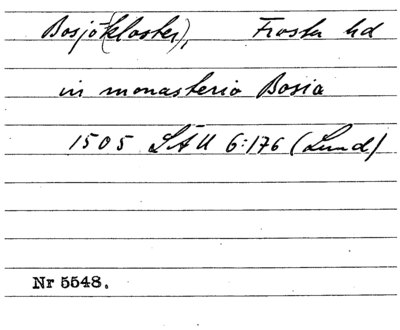 Bosjö(kloster), Frosta hd
in monasterio Bosia
1505 LÄU 6:176 (Lund)
Nr 5548.